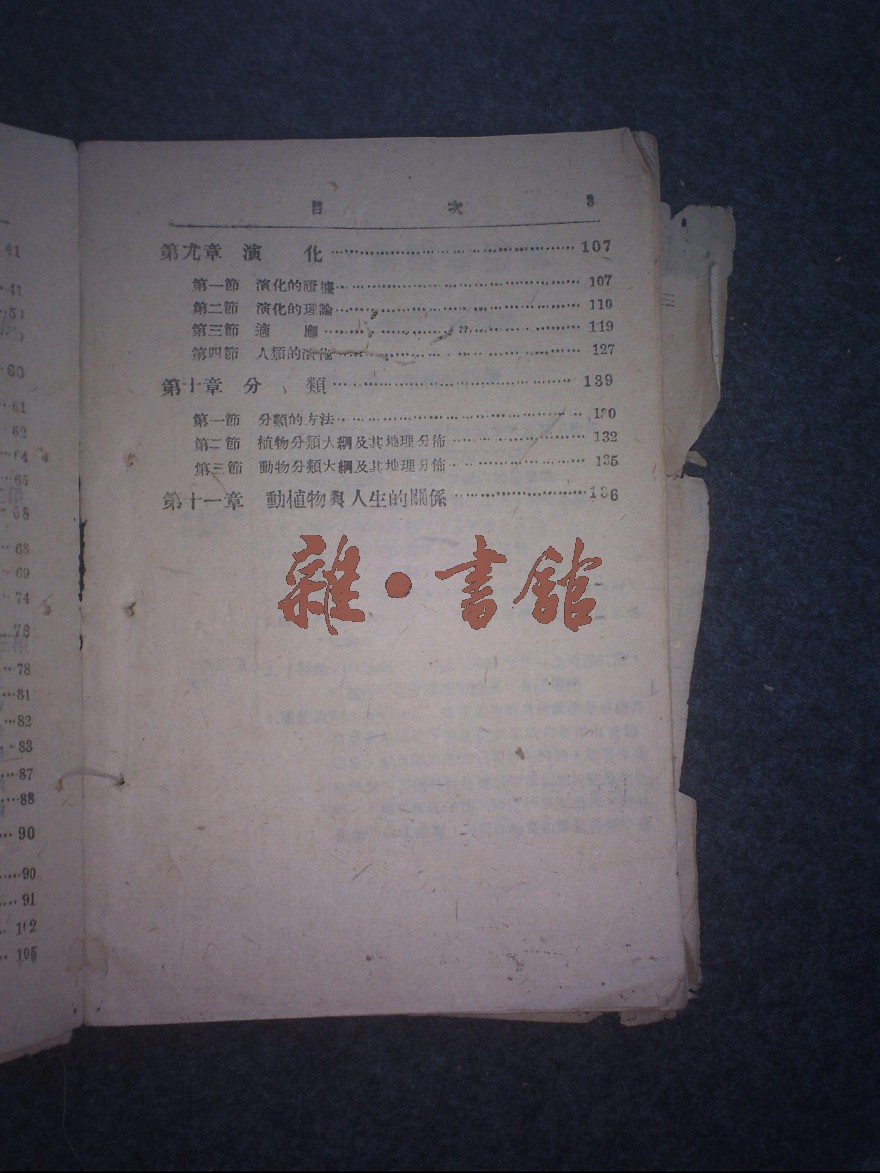 41
41
60
61
62
64
65
68
68
69
74
78
78
81
82
83
87
88
90
90
91
102
105
目 次 3
第九章 演 化 107
第一節 演化的證據 107
第二節 演化的理論 110
第三節 適 應 119
第四節 人類的演化 127
第十章 分 類 139
第一節 分類的方法 130
第二節 植物分類大綱及其地理分佈 132
第三節 動物分類大綱及其地理分佈 135
第十一章 動植物與人生的關係 136
雜·書館